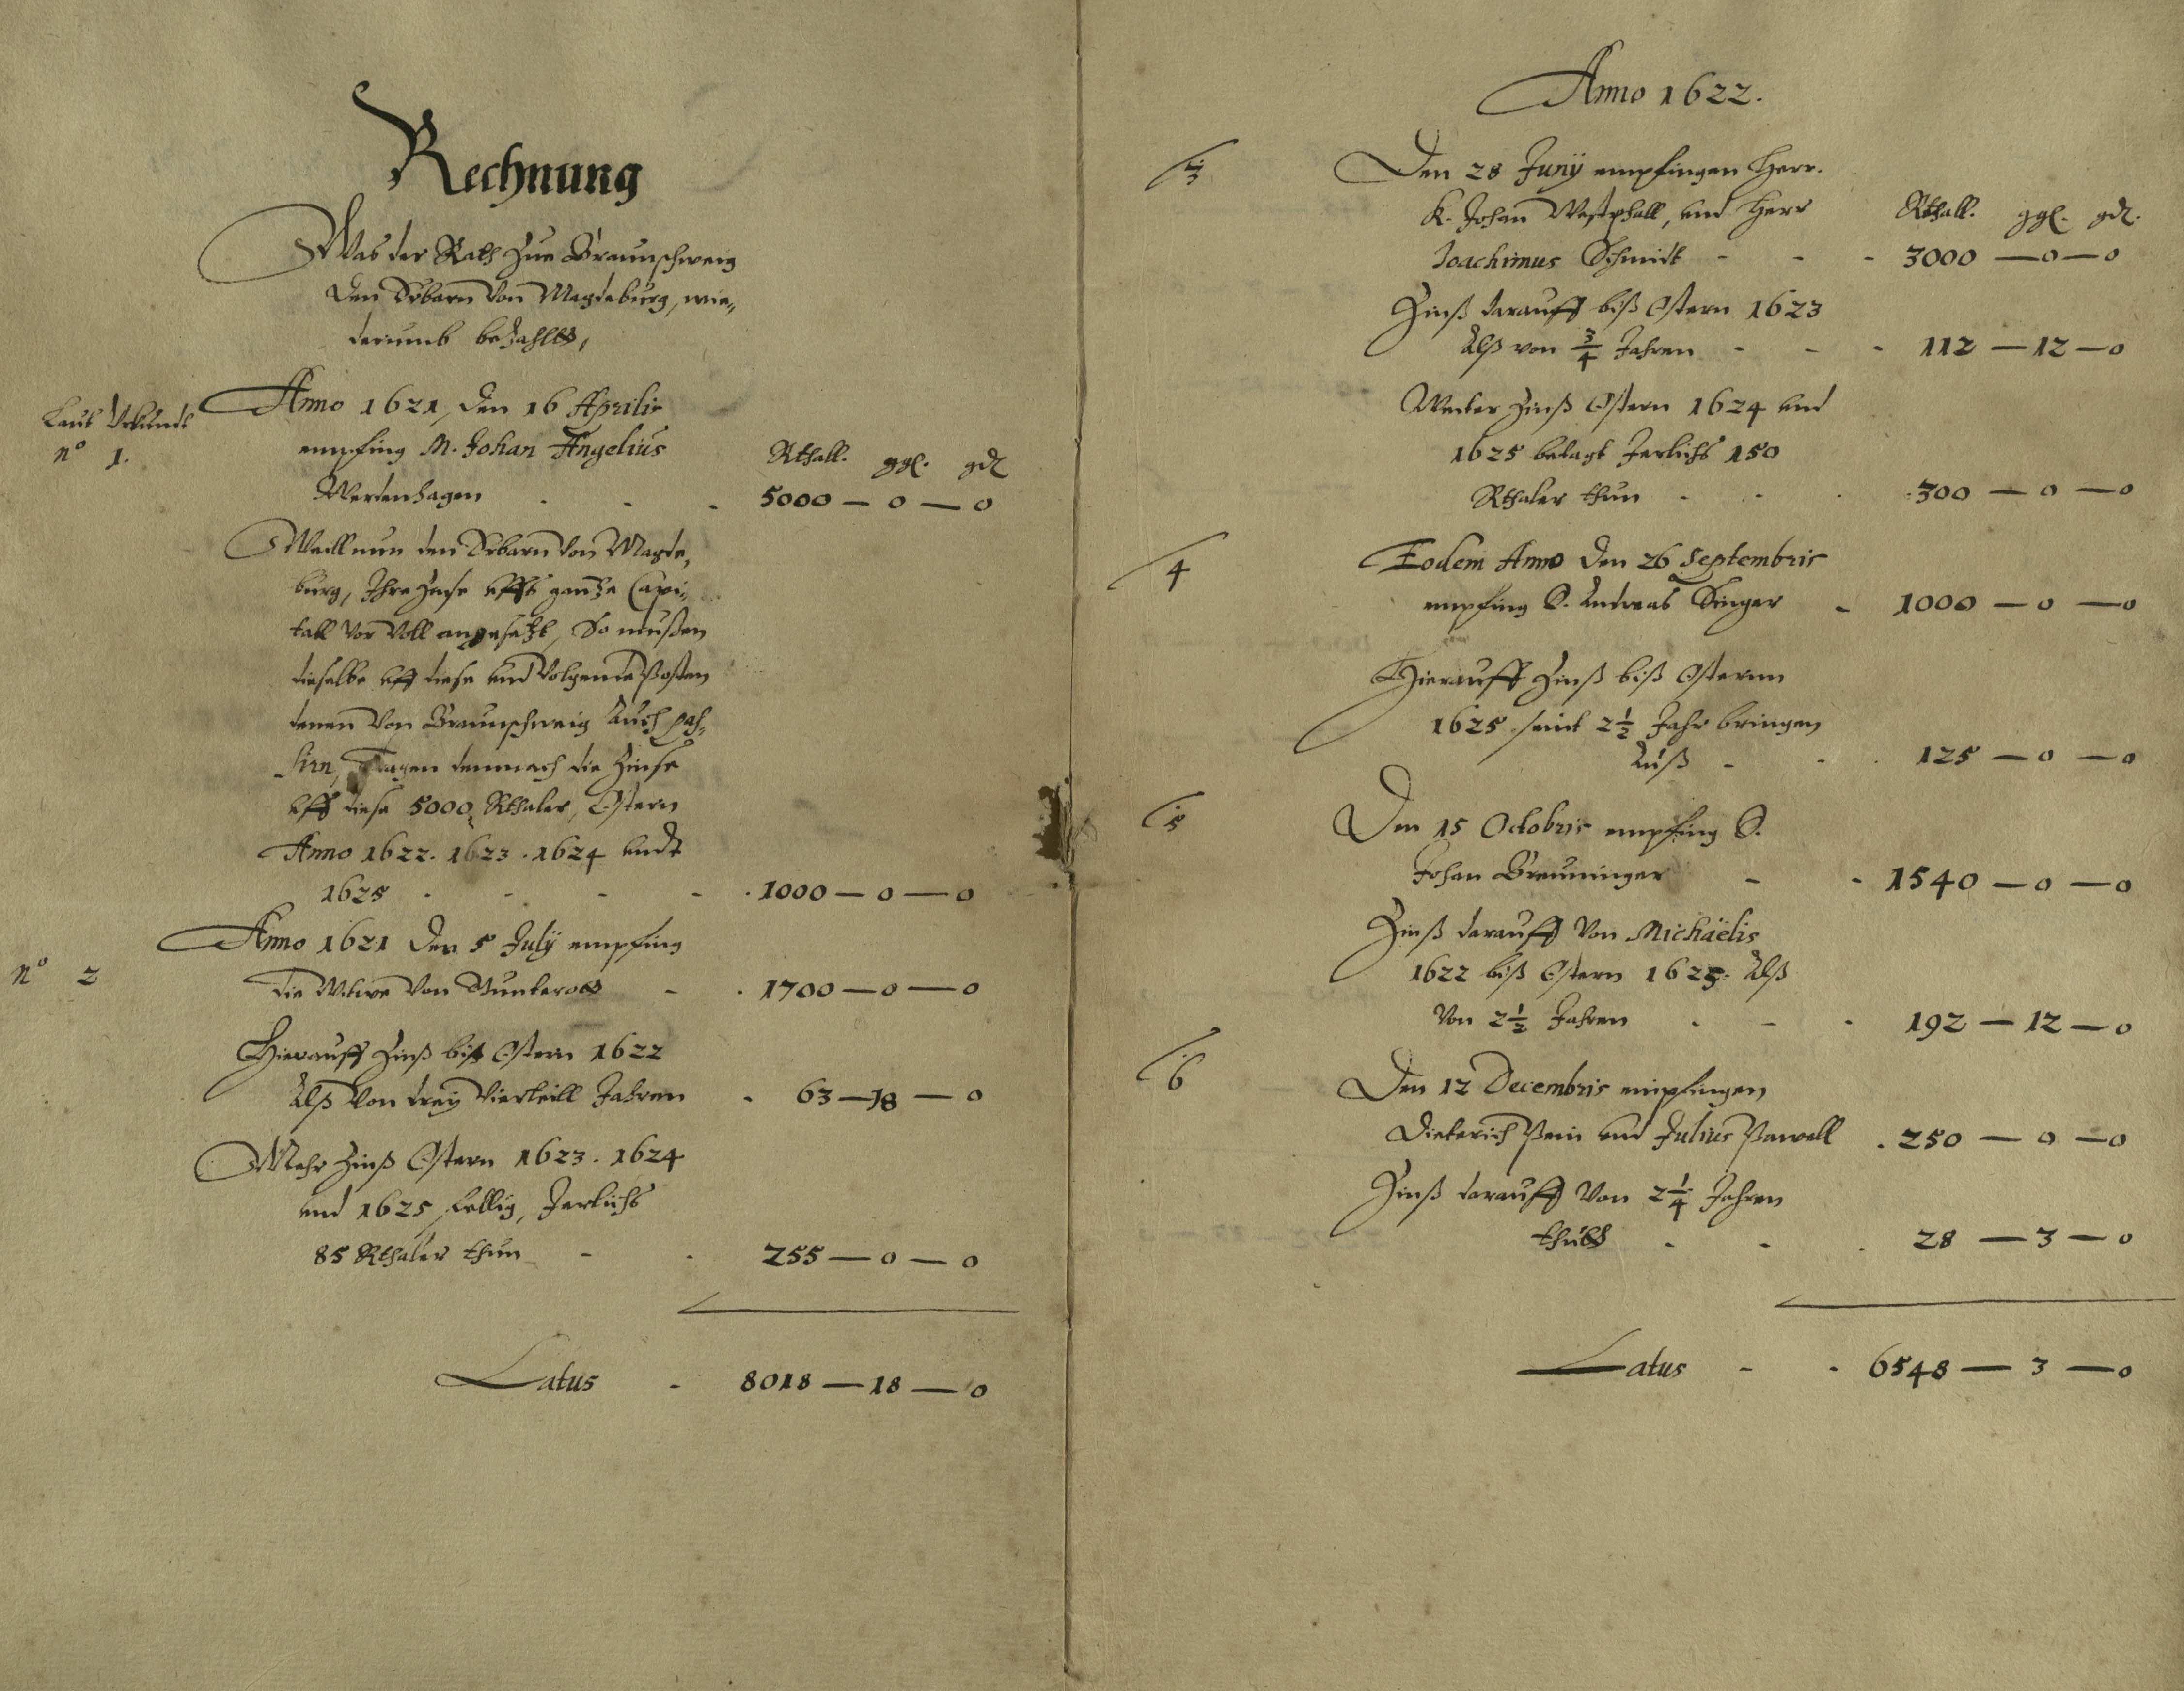 Rechnung
Was der Rath zue Braunschweig
den Erbarn von Magdeburg, wie„
derumb bezahltt,
Laut Vrkundt
n° 1.
Anno 1621, den 16 Aprilis
empfing M. Johan Angelius
Rthall. ggl. gd
Werdenhagen - - - 5000 — 0 — 0
Weill nun den Erbarn von Magde„
burg, Ihre Zinse vffs gantze Capi„
tall vor voll angesetzt, So müßen
dieselbe vff diese vnd volgende Posten
denen von Braunschweig auch pas„
siren, Tragen demnach die Zinse
vff diese 5000 Rthaler, Ostern
Anno 1622. 1623. 1624 vndt
1625 - - - - 1000 — 0 — 0
n° 2
Anno 1621 den 5 July empfing
die Witwe von - - 1700 — 0 — 0
Hierauff Zinß biß Ostern 1622
Alß von drey Vierteill Jahren - 63 — 18 — 0
Mehr Zinß Ostern 1623. 1624
vnd 1625 fellig, Jerlichs
85 Rthaler thun - - 255 — 0 — 0
Latus - 8018 — 18 — 0
Anno 1622.
3
Den 28 Junÿ empfingen Herr.
K. Johan Westphall, vnd Herr
Rthall. ggl. gd.
Joachimus Schmidt - - - 3000 — 0 — 0
Zinß darauff biß Ostern 1623
Alß von 3/4 Jahren - - - 112 — 12 — 0
Weiter Zinß Ostern 1624 vnd
1625 betagt Jerlichs 150
Rthaler thun - - - 300 — 0 — 0
4
Eodem Anno den 26 Septembris
empfing S. Andreas Singer - 1000 — 0 — 0
Hierauff Zinß biß Osternn
1625 seint 2 1/2 Jahr bringen
Auß - - - 125 — 0 — 0
5
Den 15 Octobris empfing S.
Johan Breuninger - - 1540 — 0 — 0
Zinß darauff von Michaëlis
1622 biß Ostern 1625. Alß
von 2 1/2 Jahren - - - 192 — 12 — 0
6
Den 12 Decembris empfingen
Dieterich Pein vnd Julius Pawell - 250 — 0 — 0
Zinß darauff von 2 1/4 Jahren
thutt - - - 28 — 3 — 0
Latus - - 6548 — 3 — 0